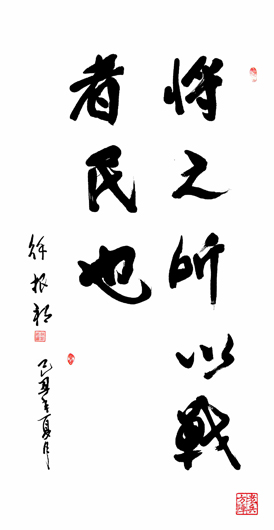 将之所以戰
者民也
己丑年夏月
徐根